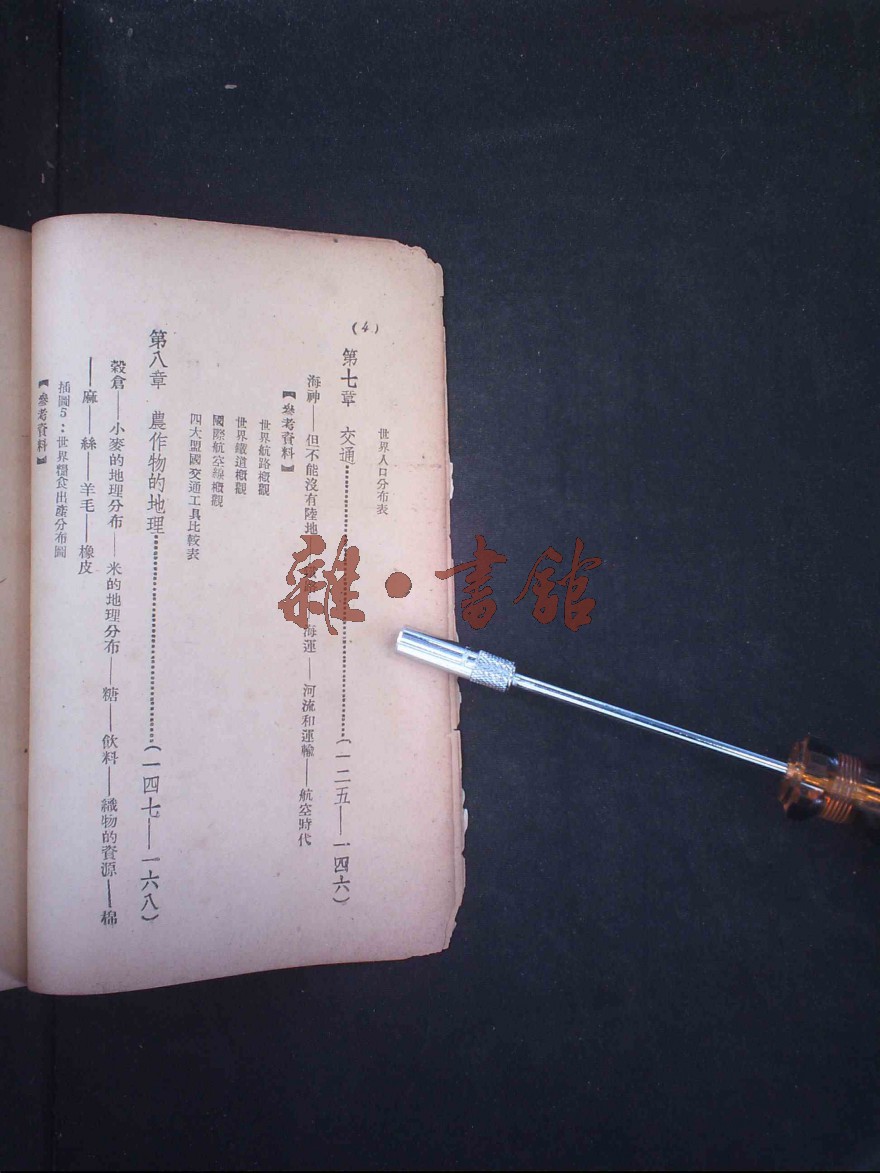 (4)
世界人口分布表
第七章 交通……(一二五——一四六)
海神——但不能沒有陸地 海運——河流和運輸——航空時代
【參考資料】
世界航路概觀
世界鐵道概觀
國際航空線概觀
四大盟國交通工具比較表
第八章 農作物的地理……(一四七——一六八)
穀倉——小麥的地理分布——米的地理分布——糖——飲料——織物的資源——棉
——麻——絲——羊毛——橡皮
插圖5:世界糧食出產分布圖
【參考資料】
雜·書館